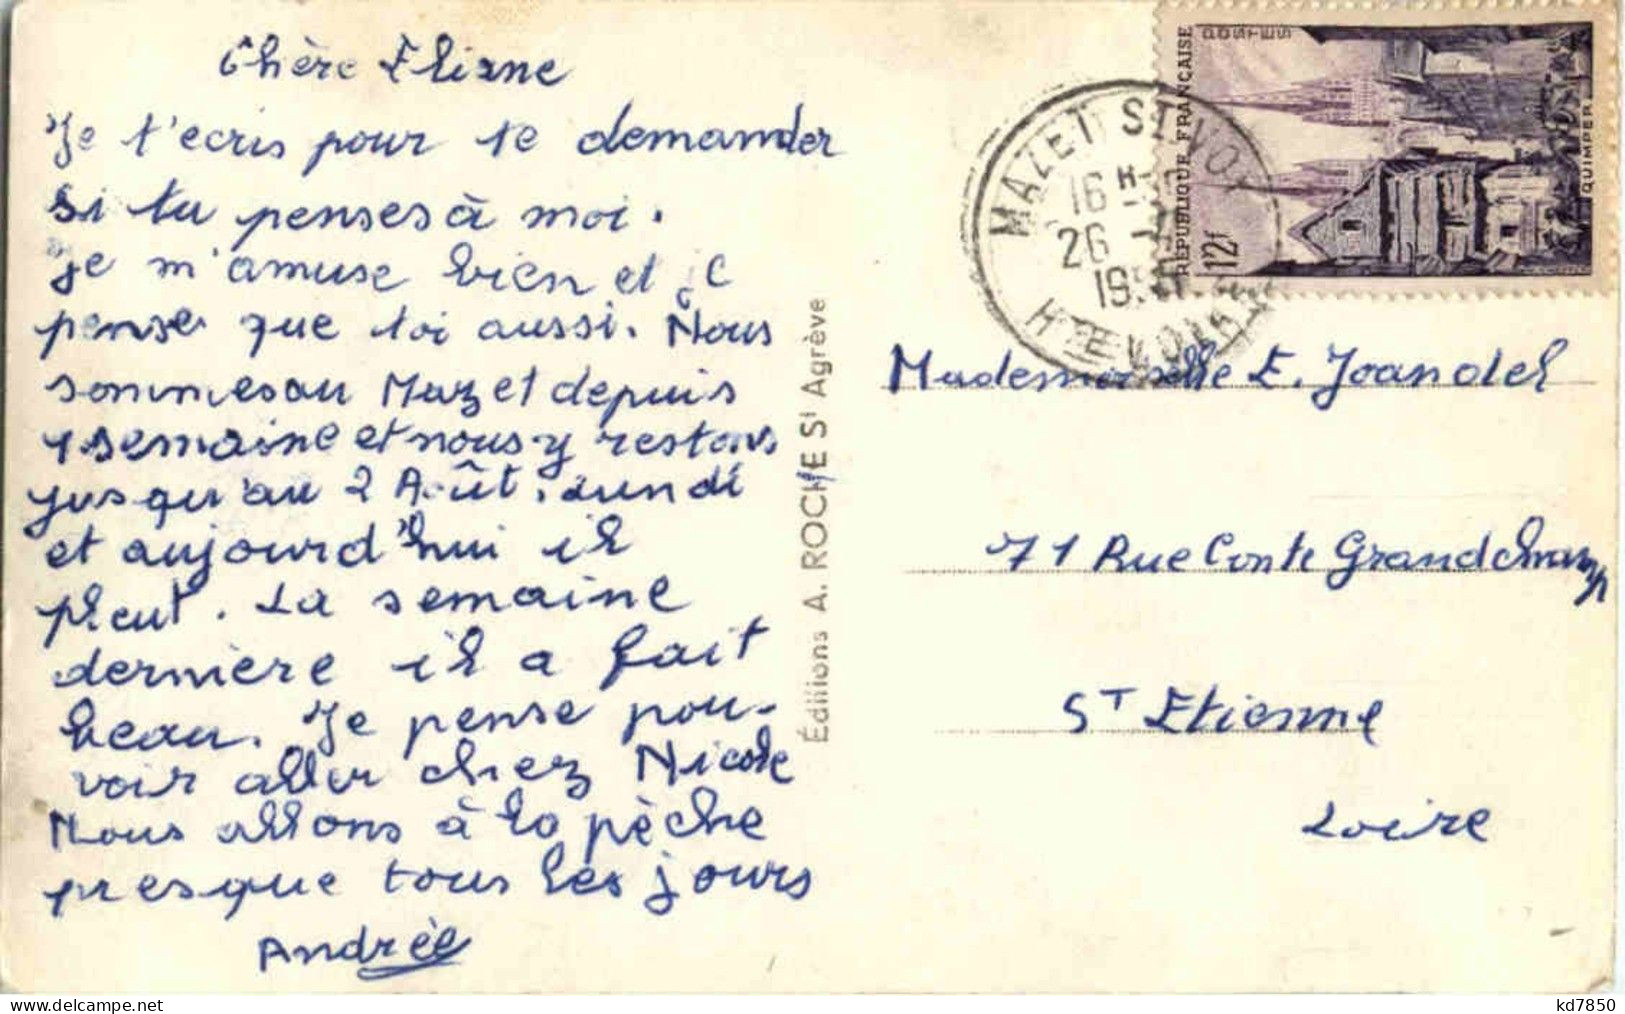 Chère Eliane
Je t'ecris pour te demander
si tu penses à moi.
Je m'amuse bien et je
pense que toi aussi. Nous
sommes au Mazet depuis
1 semaine et nous y restons
jusqu'au 2 Août. Lundi
et aujourd'hui il
pleut. La semaine
dernière il a fait
beau. Je pense pou-
voir aller chez Nicole
Nous allons à la pèche
presque tous les jours
Andrée
Éditions A. ROCHE St Agrève
MAZET ST VOY
16 H
26
HTE LOIRE
RÉPUBLIQUE FRANÇAISE
POSTES
12f
QUIMPER
Mademoiselle E. Joandel
71 Rue Conte Grandchamp
ST Etienne
Loire
kd7850